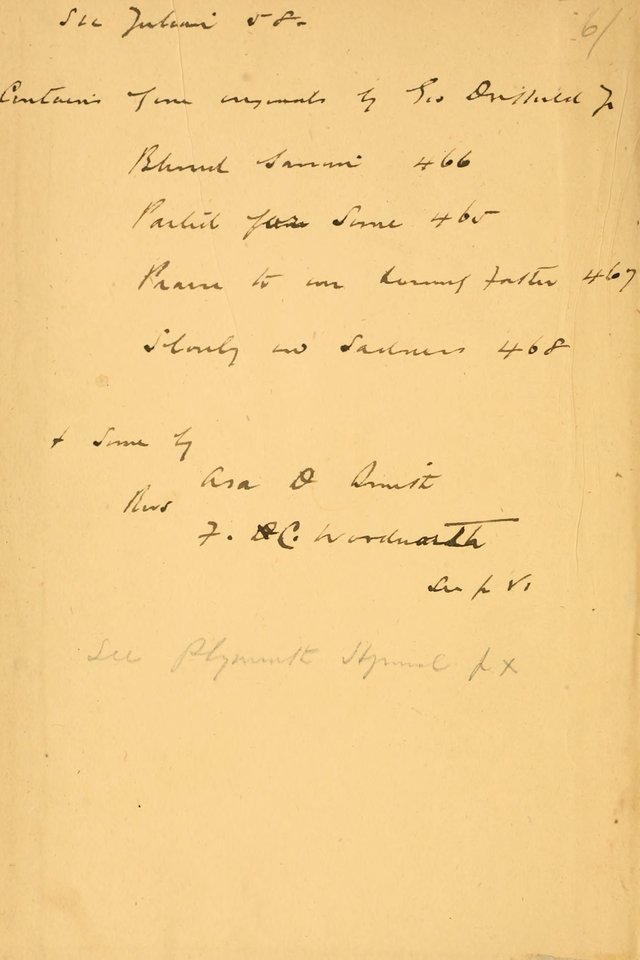 6/
See Julian 58-
Contains four originals by Geo Duffield Jr
Blessed Saviour 466
Parted for Some 465
Praise to our Father 467
Slowly in Sadness 468
+ Some by
Asa D Smith
Revs
F. C. Woodworth
See p VI
See Plymouth Hymnal p X